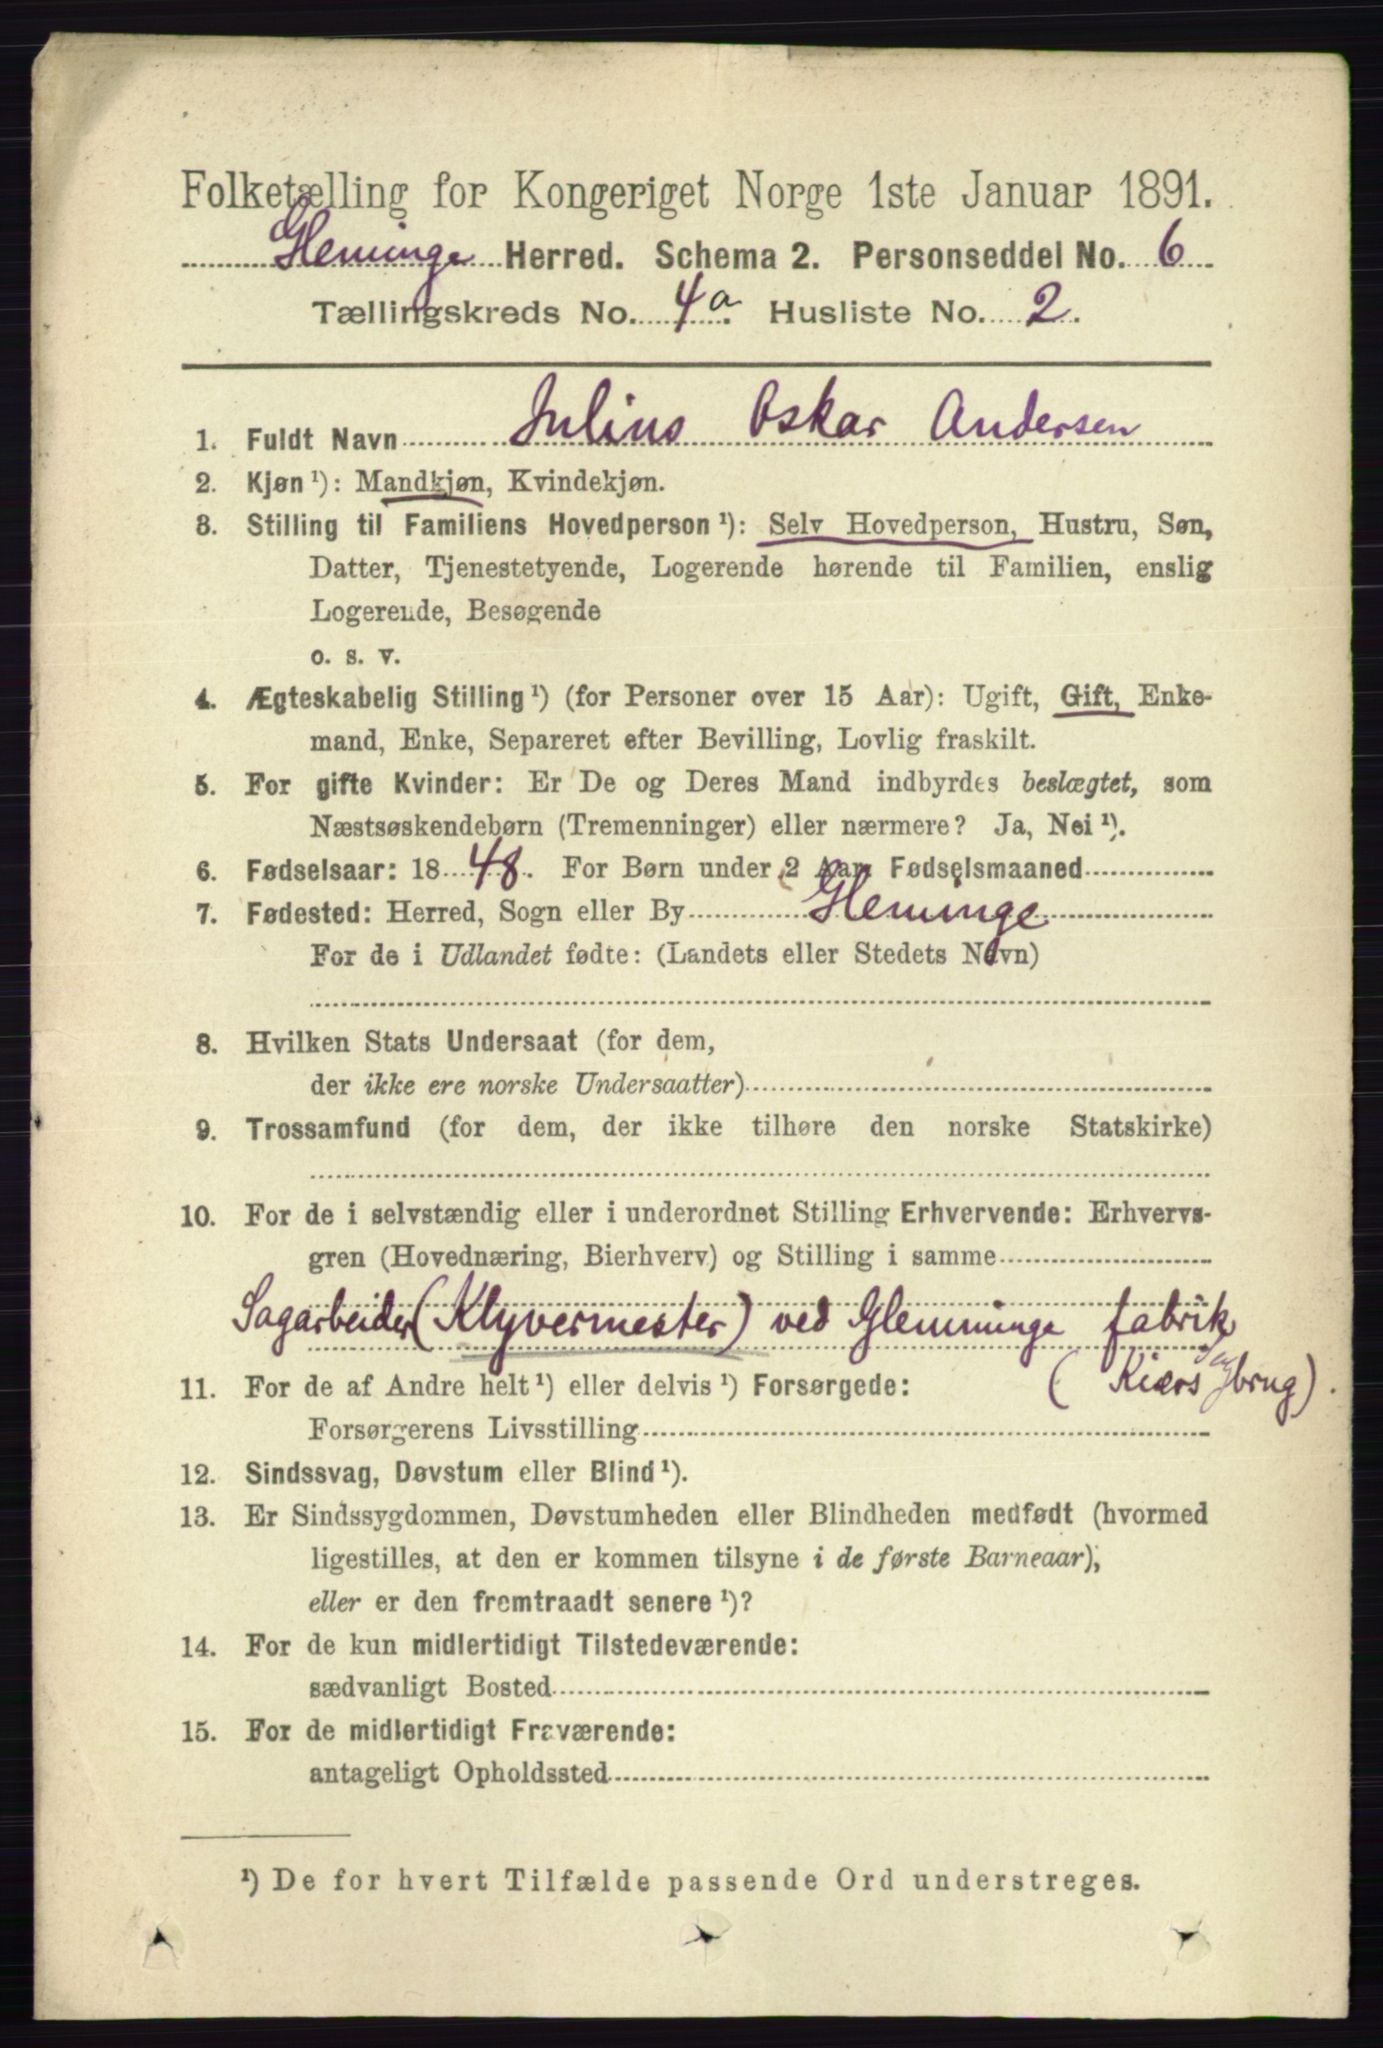 Folketælling for Kongeriget Norge 1ste Januar 1891.
Glemminge Herred. Schema 2. Personseddel No. 6
Tællingskreds No. 4a. Husliste No. 2.
1. Fuldt Navn Julius Oskar Andersen
2. Kjøn ¹): Mandkjøn, Kvindekjøn.
3. Stilling til Familiens Hovedperson ¹): Selv Hovedperson, Hustru, Søn,
Datter, Tjenestetyende, Logerende hørende til Familien, enslig
Logerende, Besøgende
o. s. v.
4. Ægteskabelig Stilling ¹) (for Personer over 15 Aar): Ugift, Gift, Enke-
mand, Enke, Separeret efter Bevilling, Lovlig fraskilt.
5. For gifte Kvinder: Er De og Deres Mand indbyrdes beslægtet, som
Næstsøskendebørn (Tremenninger) eller nærmere? Ja, Nei ¹).
6. Fødselsaar: 1848. For Børn under 2 Aar: Fødselsmaaned
7. Fødested: Herred, Sogn eller By Glemminge
For de i Udlandet fødte: (Landets eller Stedets Navn)
8. Hvilken Stats Undersaat (for dem,
der ikke ere norske Undersaatter)
9. Trossamfund (for dem, der ikke tilhøre den norske Statskirke)
10. For de i selvstændig eller i underordnet Stilling Erhvervende: Erhvervs-
gren (Hovednæring, Bierhverv) og Stilling i samme
Sagarbeider (Klyvermester) ved Glemminge fabrik
(Kiærs Sagbrug).
11. For de af Andre helt ¹) eller delvis ¹) Forsørgede:
Forsørgerens Livsstilling
12. Sindssvag, Døvstum eller Blind ¹).
13. Er Sindssygdommen, Døvstumheden eller Blindheden medfødt (hvormed
ligestilles, at den er kommen tilsyne i de første Barneaar),
eller er den fremtraadt senere ¹)?
14. For de kun midlertidigt Tilstedeværende:
sædvanligt Bosted
15. For de midlertidigt Fraværende:
antageligt Opholdssted
¹) De for hvert Tilfælde passende Ord understreges.